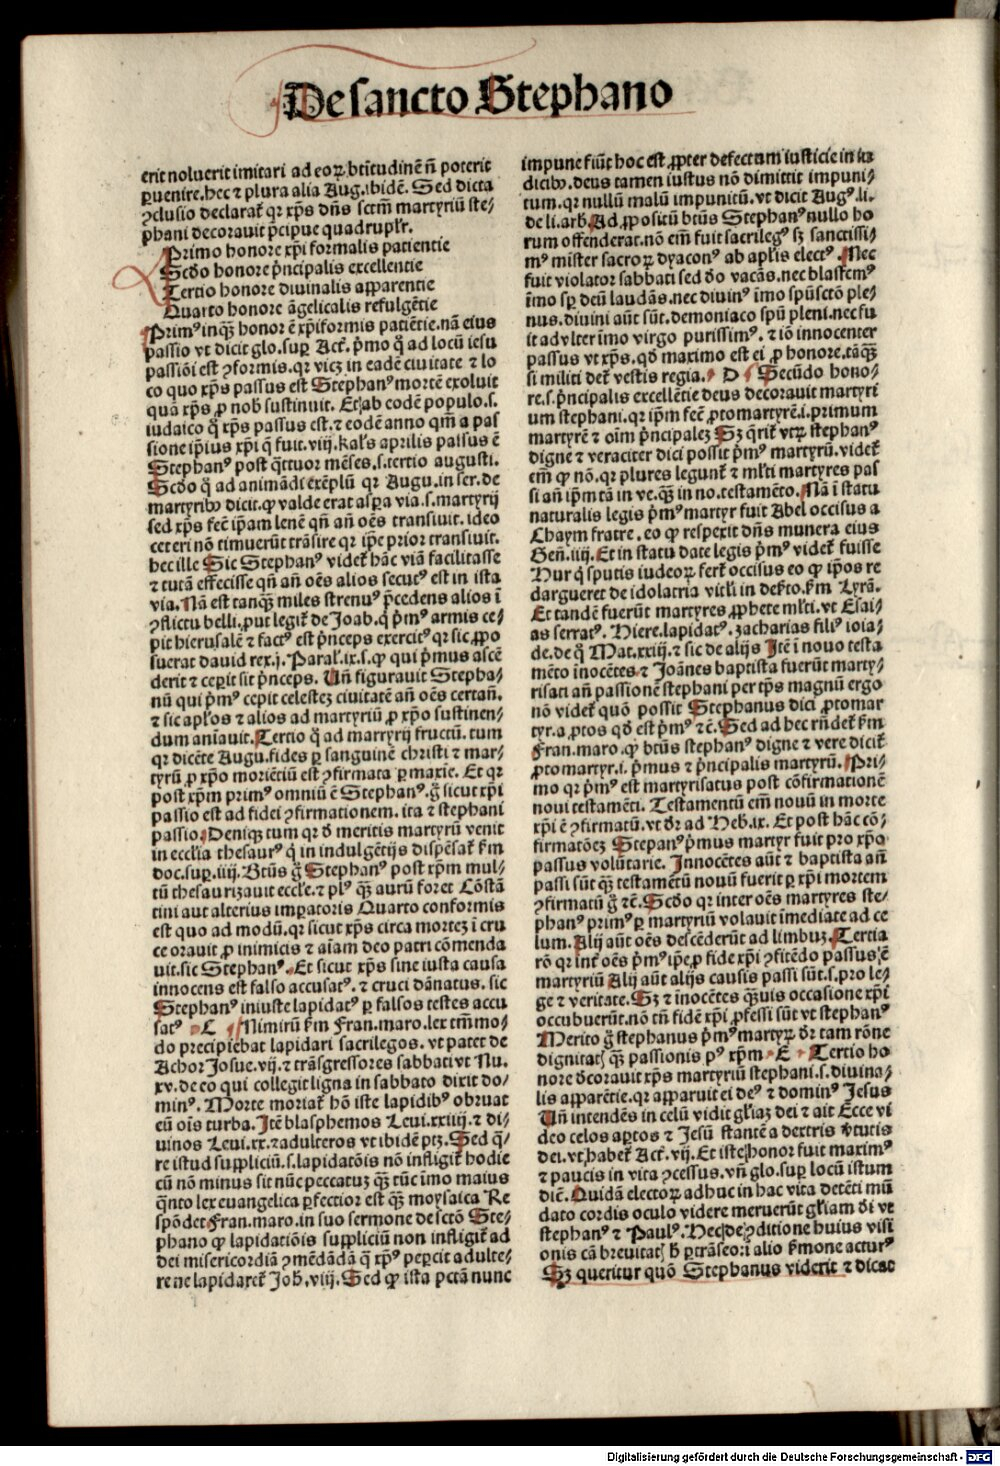 De sancto Stephano
erit noluerit imitari ad eoꝝ btītudinē n̄ poterit
ꝑuenire. hec ⁊ plura alia Aug. ibidē. Sed dicta
ꝯclusio declarat᷑ qꝛ xp̄s dn̄s sctm̄ martyriū ste⸗
phani decorauit p̄cipue quadruplr̄.
Primo honore xp̄i formalis patientie
Scd̓o honore p̄ncipalis excellentie
Tertio honore diuinalis apparentie
Quarto honore āgelicalis refulgētie
Primꝰ inqꝫ honor ē xp̄iformis patiētie. nā eius
passio vt dicit glo. suꝑ Act. p̄mo q̄ ad locū iesu
passiōi est ꝯformis. qꝛ vicꝫ in eadē ciuitate ⁊ lo
co quo xp̄s passus est Stephanꝰ mortē exoluit
quā xp̄s ꝓ nob̄ sustinuit. Et ab eodē populo. s.
iudaico q̄ xp̄s passus est. ⁊ eodē anno qm̄ a pas
sione ip̄ius xp̄i q̄ fuit. viij. kal̓s aprilis passus ē
Stephanꝰ post q̄ttuor mēses. s. tertio augusti.
Scd̓o q̄ ad animādi exēplū qꝛ Augu. in ser. de
martyribꝰ dicit. ꝙ valde erat aspa via. s. martyrij
sed xp̄s fec̄ ip̄am lenē qn̄ an̄ oēs transiuit. ideo
ceteri nō timuerūt trāsire qꝛ ip̄e prior transiuit.
hec ille Sic Stephanꝰ videt᷑ hāc viā facilitasse
⁊ tutā effecisse qn̄ an̄ oēs alios secutꝰ est in ista
via. Nā est tanqꝫ miles strenuꝰ p̄cedens alios ī
ꝯflictu belli. ꝓut legit᷑ de Joab. q̄ p̄mꝰ armis ce⸗
pit hierusalē ⁊ factꝰ est p̄nceps exercitꝰ qꝛ sic ꝓpo
suerat dauid rex. j. Paral̓. ix. s. ꝙ qui p̄mus ascē
derit ⁊ ceꝑit sit p̄nceps. Vn̄ figurauit Stepha⸗
nū qui p̄mꝰ cepit celesteꝫ ciuitatē an̄ oēs certan̄.
⁊ sic apl̓os ⁊ alios ad martyriū ꝓ xp̄o sustinen⸗
dum aniāuit. Tertio q̄ ad marryrij fructū. tum
qꝛ dicēte Augu. fides ꝑ sanguinē christi ⁊ mar⸗
tyrū ꝓ xp̄o moriētiū est ꝯfirmata ꝑmaxie. Et qꝛ
post xp̄m primꝰ omniū ē Stephanꝰ. g̊ sicut xp̄i
passio est ad fidei ꝯfirmationem. ita ⁊ stephani
passio. Deniqꝫ tum qꝛ d̓ meritis martyrū venit
in eccl̓ia thesaurꝰ q̄ in indulgētijs dispēsat᷑ ẜm
doc. suꝑ. iiij. Btūs g̊ Stephanꝰ post xp̄m mul⸗
tū thesaurizauit eccl̓e. ⁊ plꝰ qꝫ aurū foret Cōstā
tini aut alterius imꝑatoris Quarto conformis
est quo ad modū. qꝛ sicut xp̄s circa morteꝫ ī cru
ce orauit ꝓ inimicis ⁊ aīam deo patri cōmenda
uit. sic Stephanꝰ. Et sicut xp̄s sine iusta causa
innocens est falso accusatꝰ. ⁊ cruci dānatus. sic
Stephanꝰ iniuste lapidatꝰ ꝑ falsos testes accu
satꝰ C Nimirū ẜm Fran. maro. lex tm̄mo⸗
do precipiebat lapidari sacrilegos. vt patet de
Achor Josue. vij. ⁊ trāsgressores sabbati vt Nu.
xv. de eo qui collegit ligna in sabbato dixit do⸗
minꝰ. Morte moriat᷑ hō iste lapidibꝰ obruat
eū oīs turba. Itē blasphemos Leui. xxiiij. ⁊ di⸗
uinos Leui. xx. ⁊ adulteros vt ibidē ptꝫ. Sed q̄⸗
re istud suppliciū. s. lapidatōis nō infligit᷑ hodie
cū nō minus sit nūc peccatuꝫ qꝫ tūc imo maius
q̄nto lex euangelica ꝑfectior est qꝫ moysaica Re
spōdet Fran. maro. in suo sermone de sctō Ste⸗
phano ꝙ lapidatiōis suppliciū non infligit᷑ ad
dei misericordiā ꝯmēdādā q̄ xp̄ꝰ peꝑcit adulte⸗
re ne lapidaret᷑ Joh̄. viij. Sed ꝙ ista pctā nunc
impune fiūt hoc est ꝓpter defectum iusticie in iu
dicibꝰ. deus tamen iustus nō dimittit impuni⸗
tum. qꝛ nullū malū impunitū. vt dicit Augꝰ. li.
de li. arb. Ad ꝓpositū btūs Stephanꝰ nullo ho
rum offenderat. nō em̄ fuit sacrilegꝰ sꝫ sanctissi⸗
mꝰ mīster sacroꝝ dyaconꝰ ab apl̓is electꝰ. Nec
fuit violator sabbati sed d̓o vacās. nec blasfemꝰ
īmo sꝑ deū laudās. nec diuinꝰ īmo spūsctō ple⸗
nus. diuini aūt sūt. demoniaco spū pleni. nec fu
it adulter īmo virgo purissimꝰ. ⁊ iō innocenter
passus vt xp̄s. qd̓ maximo est ei ꝓ honore. tāqꝫ
si militi det᷑ vestis regia. D Secūdo hono⸗
re. s. p̄ncipalis excellētie deus decorauit martyri
um stephani. qꝛ ip̄m fec̄ ꝓtomartyrē. i. primum
martyrē ⁊ oīm p̄ncipaleꝫ Sꝫ q̄rit᷑ vtꝝ stephanꝰ
digne ⁊ veraciter dici possit p̄mꝰ martyrū. videt᷑
em̄ ꝙ nō. qꝛ plures legunt᷑ ⁊ ml̓ti martyres pas
si an̄ ip̄m tā in ve. qꝫ in no. testamēto. Nā ī statu
naturalis legis p̄mꝰ martyr fuit Abel occisus a
Chaym fratre. eo ꝙ respexit dn̄s munera eius
Gen̄. iiij. Et in statu date legis p̄mꝰ videt᷑ fuisse
Hur q̄ sputis iudeoꝝ fert᷑ occisus eo ꝙ ip̄os re
dargueret de idolatria vituli in deẜto. ẜm Lyrā.
Et tandē fuerūt martyres ꝓphete ml̓ti. vt Esai⸗
as serratꝰ. Hiere. lapidatꝰ. zacharias filiꝰ ioia⸗
de. de q̄ Mat. xxiij. ⁊ sic de alijs Itē ī nouo testa
mēto inocētes. ⁊ Joānes baptista fuerūt marty⸗
risati an̄ passionē stephani per tp̄s magnū ergo
nō videt᷑ quō possit Stephanus dici ꝓtomar
tyr. a ꝓtos qd̓ est p̄mꝰ ⁊ ē. Sed ad hec rn̄det᷑ ẜm
Fran. maro. ꝙ btūs stephanꝰ digne ⁊ vere dicit᷑
ꝓtomartyr. i. p̄mus ⁊ p̄ncipalis martyrū. Pri⸗
mo qꝛ p̄mꝰ est martyrisatus post cōfirmationē
noui testamēti. Testamentū em̄ nouū in morte
xp̄i ē ꝯfirmatū. vt dr̄ ad Heb. ix. Et post hāc cō⸗
firmatōeꝫ Stepanꝰ p̄mus martyr fuit pro xp̄o
passus volūtarie. Innocētes aūt ⁊ baptista an̄
passi sūt qꝫ testamētū nouū fuerit ꝑ xp̄i mortem
ꝯfirmatū g̊ ⁊ē. Scd̓o qꝛ inter oēs martyres ste⸗
phanꝰ primꝰ ꝑ martyriū volauit īmediate ad ce
lum. Alij aūt oēs descēderūt ad limbuꝫ. Tertia
rō qꝛ int᷑ oēs p̄mꝰ ip̄e ꝓ fide xp̄i ꝯfitēdo passus ē
martyriū Alij aūt alijs causis passi sūt. s. pro le⸗
ge ⁊ veritate. Sꝫ ⁊ inocētes qꝫuis occasione xp̄i
occubuerūt. nō tn̄ fidē xp̄i ꝓfessi sūt vt stephanꝰ
Merito g̊ stephanus p̄mꝰ martyꝝ dr̄ tam rōne
dignitatꝭ qꝫ passionis pꝰ xp̄m. E Tertio ho
nore d̓corauit xp̄s martyriū stephani. s. diuina⸗
lis apparētie. qꝛ apparuit ei deꝰ ⁊ dominꝰ Jesus
Vn̄ intendēs in celū vidit gl̓iaꝫ dei ⁊ ait Ecce vi
deo celos aꝑtos ⁊ Jesū stantē a dextris v̓tutis
dei. vt habet᷑ Act᷑. vij. Et iste honor fuit maximꝰ
⁊ paucis in vita ꝯcessus. vn̄ glo. suꝑ locū istum
diē. Quidā electoꝝ adhuc in hac vita detēti mū
dato cordis oculo videre meruerūt gl̓iam d̓i vt
stephanꝰ ⁊ Paulꝰ. Hec de ꝯditione huius visi
onis cā breuitatꝭ h̄ ꝑtrāseo: ī alio ẜmone acturꝰ
Sꝫ queritur quō Stephanus viderit ⁊ dicat
Digitalisierung gefördert durch die Deutsche Forschungsgemeinschaft - DFG